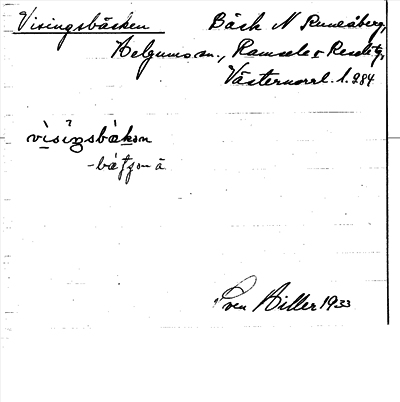 Visingsbäcken Bäck N Runsåberg,
Helgums sn., Ramsele o Resele tg,
Västernorrl. l. 284
visiŋsbäkən
-bäƫʃən ä
Sven Hiller 1933